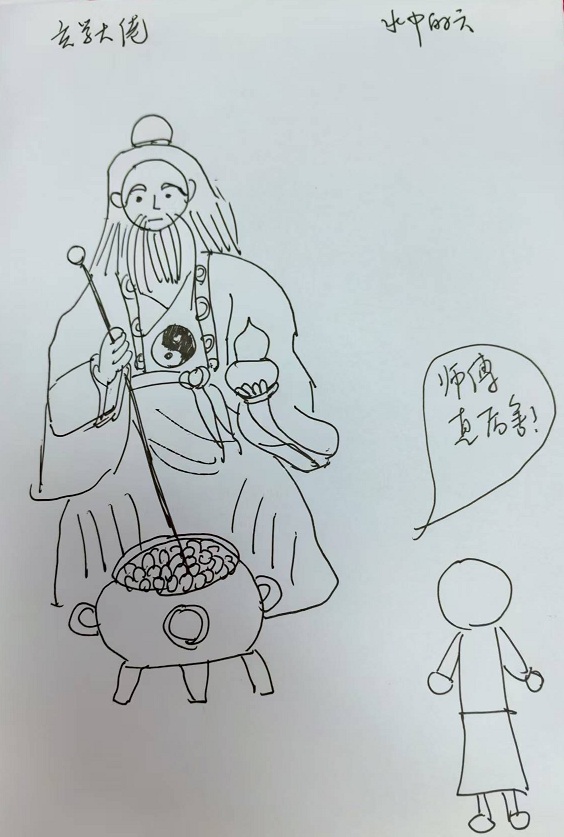 玄学大佬
水中的云
师傅
真厉害!